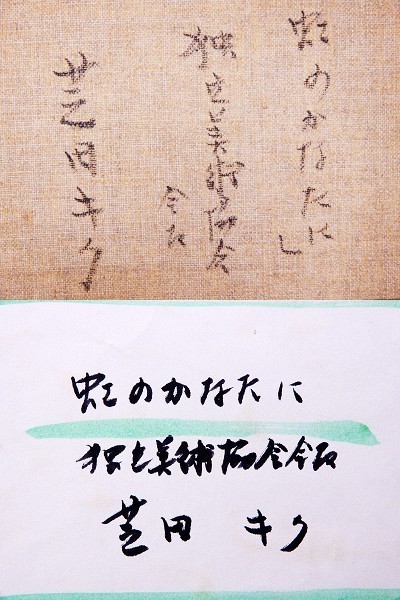 虹のかなたに」
独立美術協会
会友
芝田キク
虹のかなたに
独立美術協会会友
芝田 キク